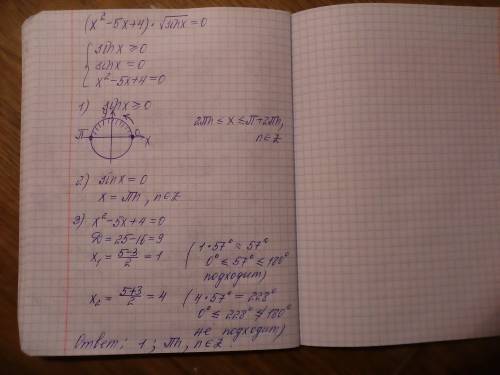 (x² - 5x + 4) · √sinx = 0
{ sinx ≥ 0
sinx = 0
x² - 5x + 4 = 0
1) sinx ≥ 0
π 0 x
2πn ≤ x ≤ π + 2πn,
n ∈ Z
2) sinx = 0
x = πn, n ∈ Z
3) x² - 5x + 4 = 0
D = 25 - 16 = 9
x₁ = (5-3)/2 = 1 (1 · 57° = 57°
0° ≤ 57° ≤ 180°
подходит)
x₂ = (5+3)/2 = 4 (4 · 57° = 228°
0° ≤ 228° ≰ 180°
не подходит)
Ответ: 1; πn, n ∈ Z.